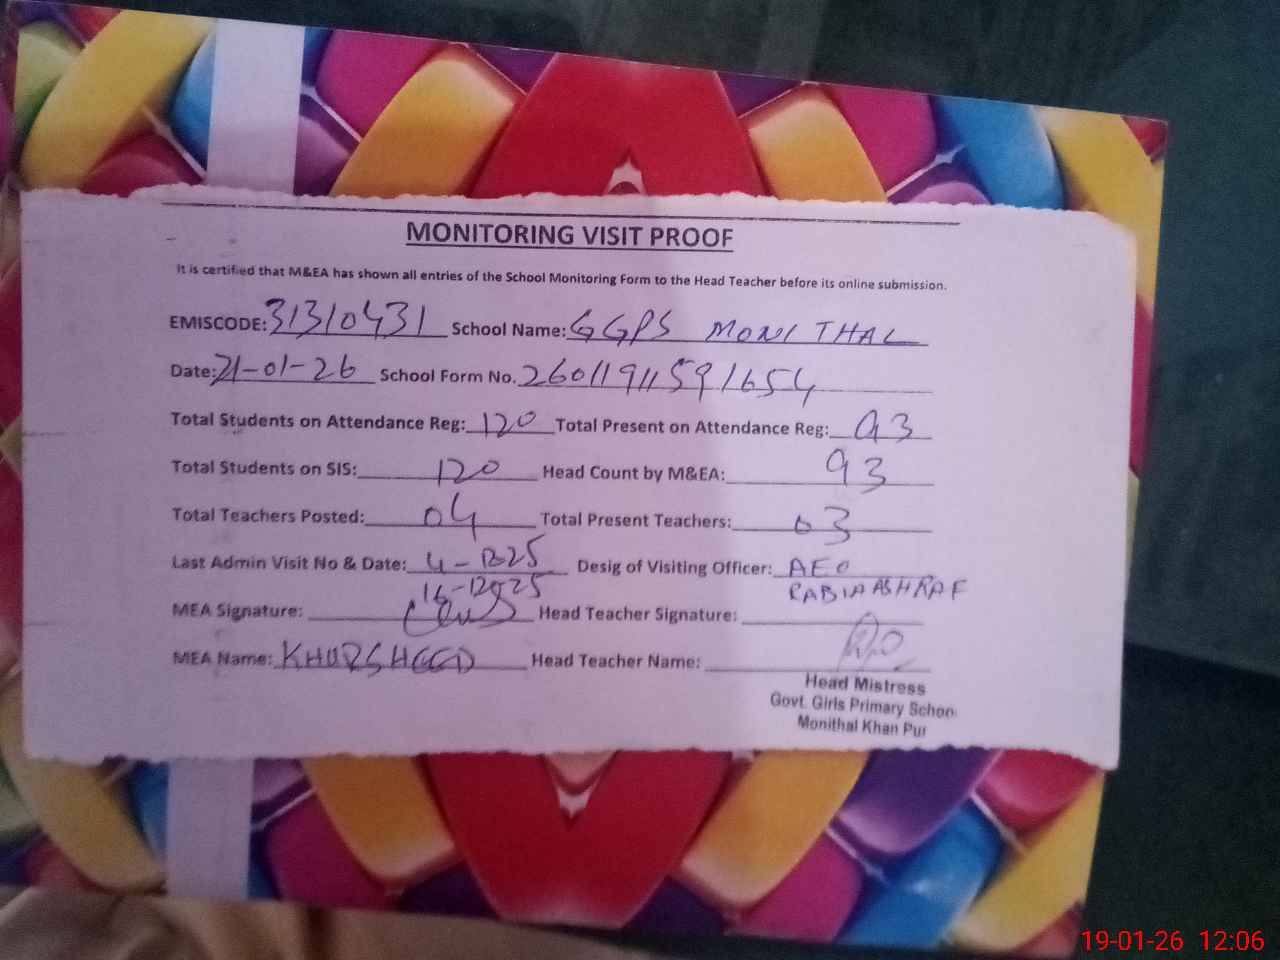 MONITORING VISIT PROOF
It is certified that M&EA has shown all entries of the School Monitoring Form to the Head Teacher before its online submission.
EMISCODE: 31310431 School Name: GGPS MONITHAL
Date: 21-01-26 School Form No. 26011911591654
Total Students on Attendance Reg: 120 Total Present on Attendance Reg: 93
Total Students on SIS: 120 Head Count by M&EA: 93
Total Teachers Posted: 04 Total Present Teachers: 03
Last Admin Visit No & Date: 4-1225 Desig of Visiting Officer: AEO
16-1225 RABIA ASHRAF
MEA Signature: Head Teacher Signature:
MEA Name: KHURSHEED Head Teacher Name:
Head Mistress
Govt. Girls Primary School
Monithal Khan Pur
19-01-26 12:06